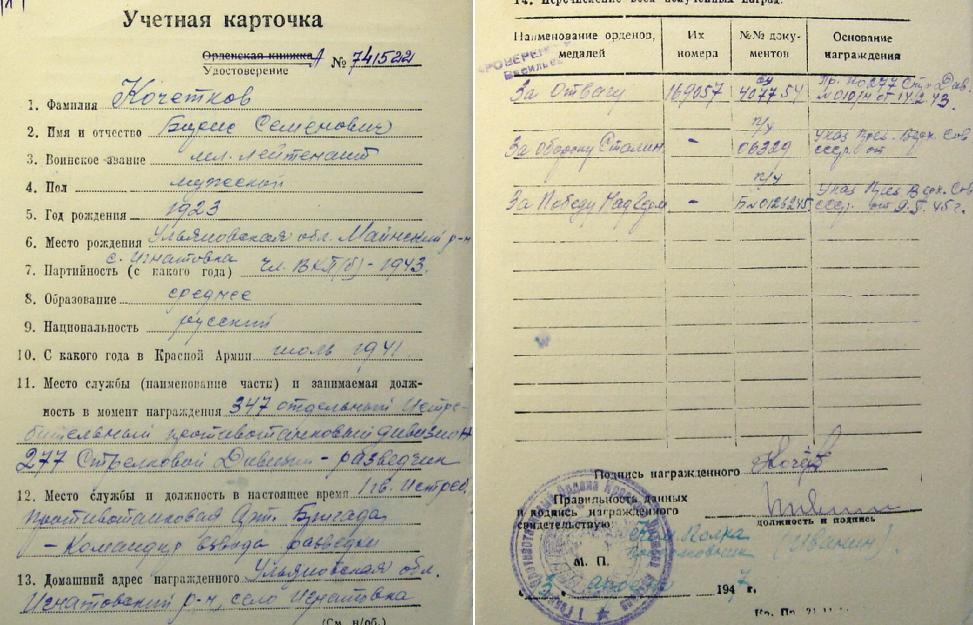 Учетная карточка
Орденская книжка А № 741522
Удостоверение
1. Фамилия Кочетков
2. Имя и отчество Борис Семенович
3. Воинское звание мл. лейтенант
4. Пол мужской
5. Год рождения 1923
6. Место рождения Ульяновская обл. Майнский р-н
с. Игнатовка
7. Партийность (с какого года) чл. ВКП(б) - 1943.
8. Образование среднее
9. Национальность русский
10. С какого года в Красной Армии июль 1941
11. Место службы (наименование части) и занимаемая долж-
ность в момент награждения 347 отдельный Истре-
бительный противотанковый дивизион
277 Стрелковой Дивизии - разведчик
12. Место службы и должность в настоящее время 1 гв. Истреб.
Противотанковая Арт. Бригада
- Командир взвода разведки
13. Домашний адрес награжденного Ульяновская обл.
Игнатовский р-н, село Игнатовка
(См. н/об.)
14. Перечисление всех полученных наград
Наименование орденов, медалей
Их номера
№№ доку-ментов
Основание награждения
За Отвагу 169057 407754 Пр. по 277 Стр. Див.
№ 010/н от 14.2.43.
За оборону Сталин - п/у 06329 Указ През. Верх. Сов
СССР от
За Победу над Герм - п/у Б№0126245 Указ През Верх. Сов
СССР от 9.5.45 г.
Подпись награжденного
Правильность данных
и подпись награжденного
свидетельствую:
должность и подпись
Полка
(Иванин).
М. П.
апреля 1947 г.